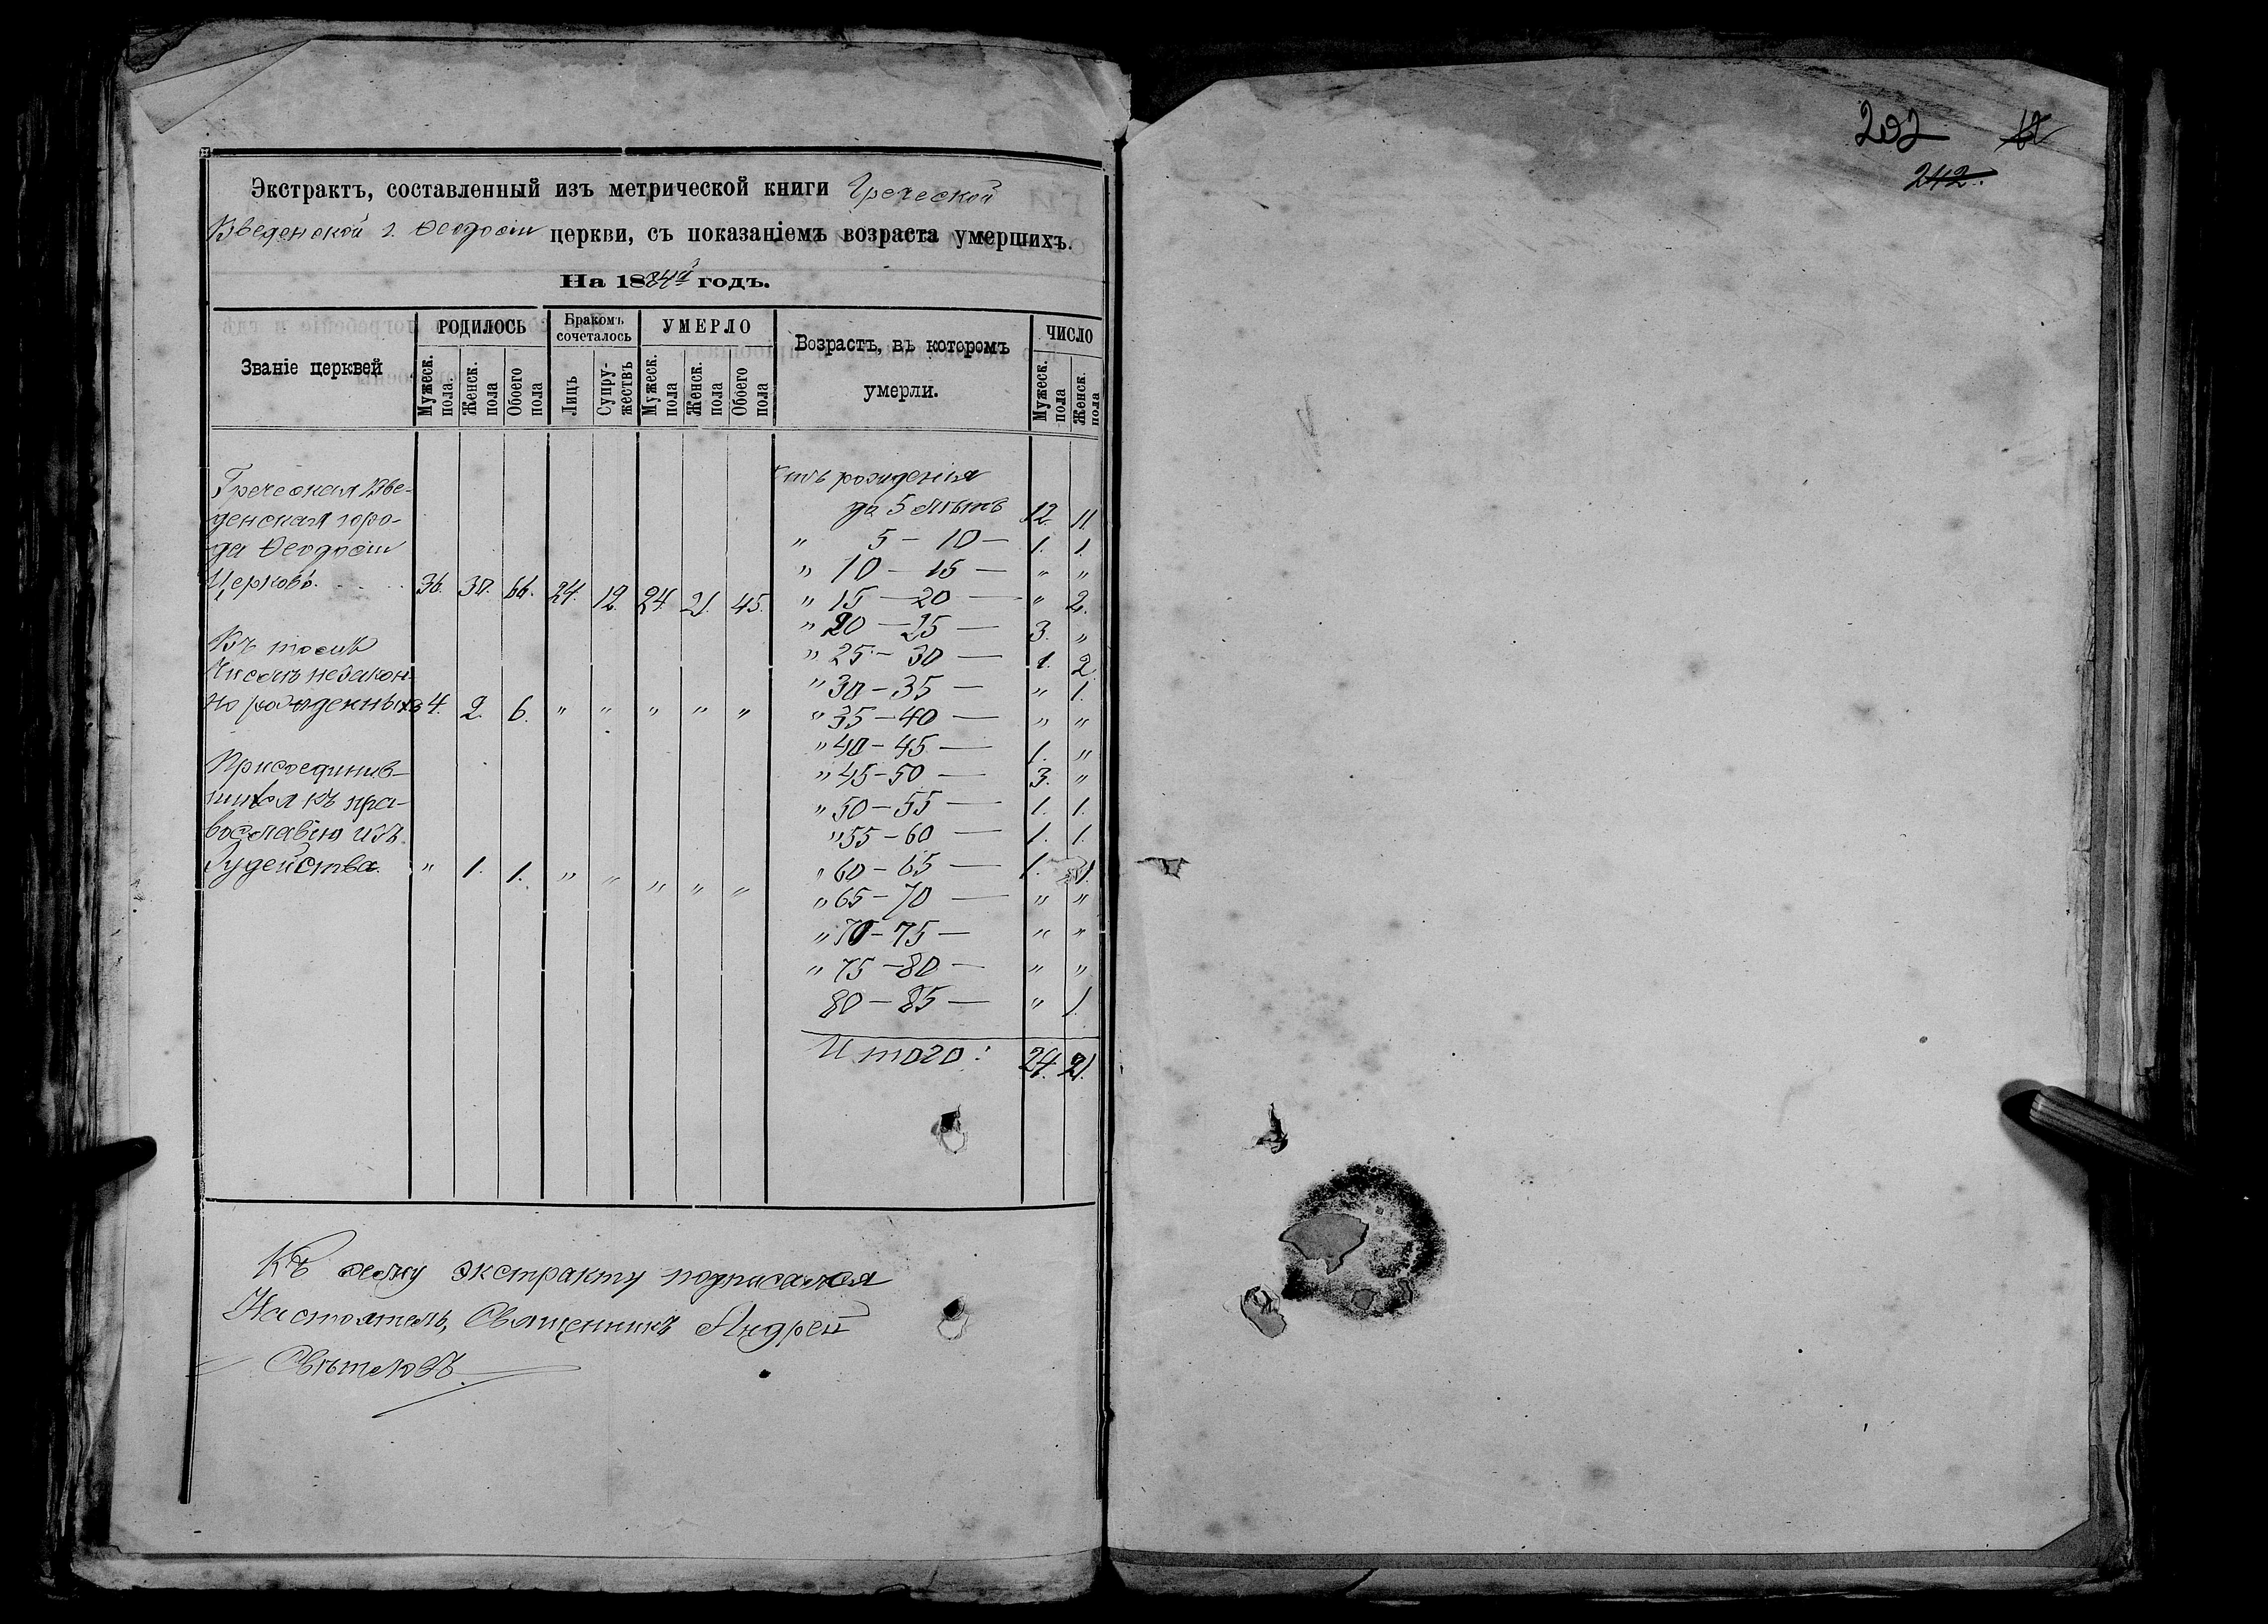 Экстрактъ, составленный изъ метрической книги Греческой
Введенской г. Ѳеодосіи церкви, съ показаніемъ возраста умершихъ.
На 1884й годъ.
Званіе церквей
РОДИЛОСЬ
Мужеск. пола.
Женск. пола
Обоего пола
Бракомъ сочеталось
Лицъ
Супружествъ
УМЕРЛО
Мужеск. пола
Женск. пола
Обоего пола
Возрастъ, въ которомъ
умерли.
ЧИСЛО
Мужеск. пола
Женск. пола
Греческая Вве-
денская горо-
да Ѳеодосіи
Церковь. . . . 36. 30. 66. 24. 12. 24. 21. 45.
Въ томъ
числѣ незакон-
но рожденныхъ 4. 2. 6. " " " " "
Присоединив-
шихся къ пра-
вославію изъ
Іудейства. " 1. 1. " " " " "
рожденія
до 5 лѣтъ 12. 11.
" 5 — 10 — 1. 1.
" 10 — 15 — " "
" 15 — 20 — " 2.
" 20 — 25 — 3. "
" 25 — 30 — 1. 2.
" 30 — 35 — " 1.
" 35 — 40 — " "
" 40 — 45 — 1. "
" 45 — 50 — 3. "
" 50 — 55 — 1. 1.
" 55 — 60 — 1. 1.
" 60 — 65 — 1. 1.
" 65 — 70 — " "
" 70 — 75 — " "
" 75 — 80 — " "
80 — 85 — " 1.
Итого: 24. 21.
Къ сему экстракту подписался
Настоятель, Священникъ Андрей
Свѣтловъ.
202
242.